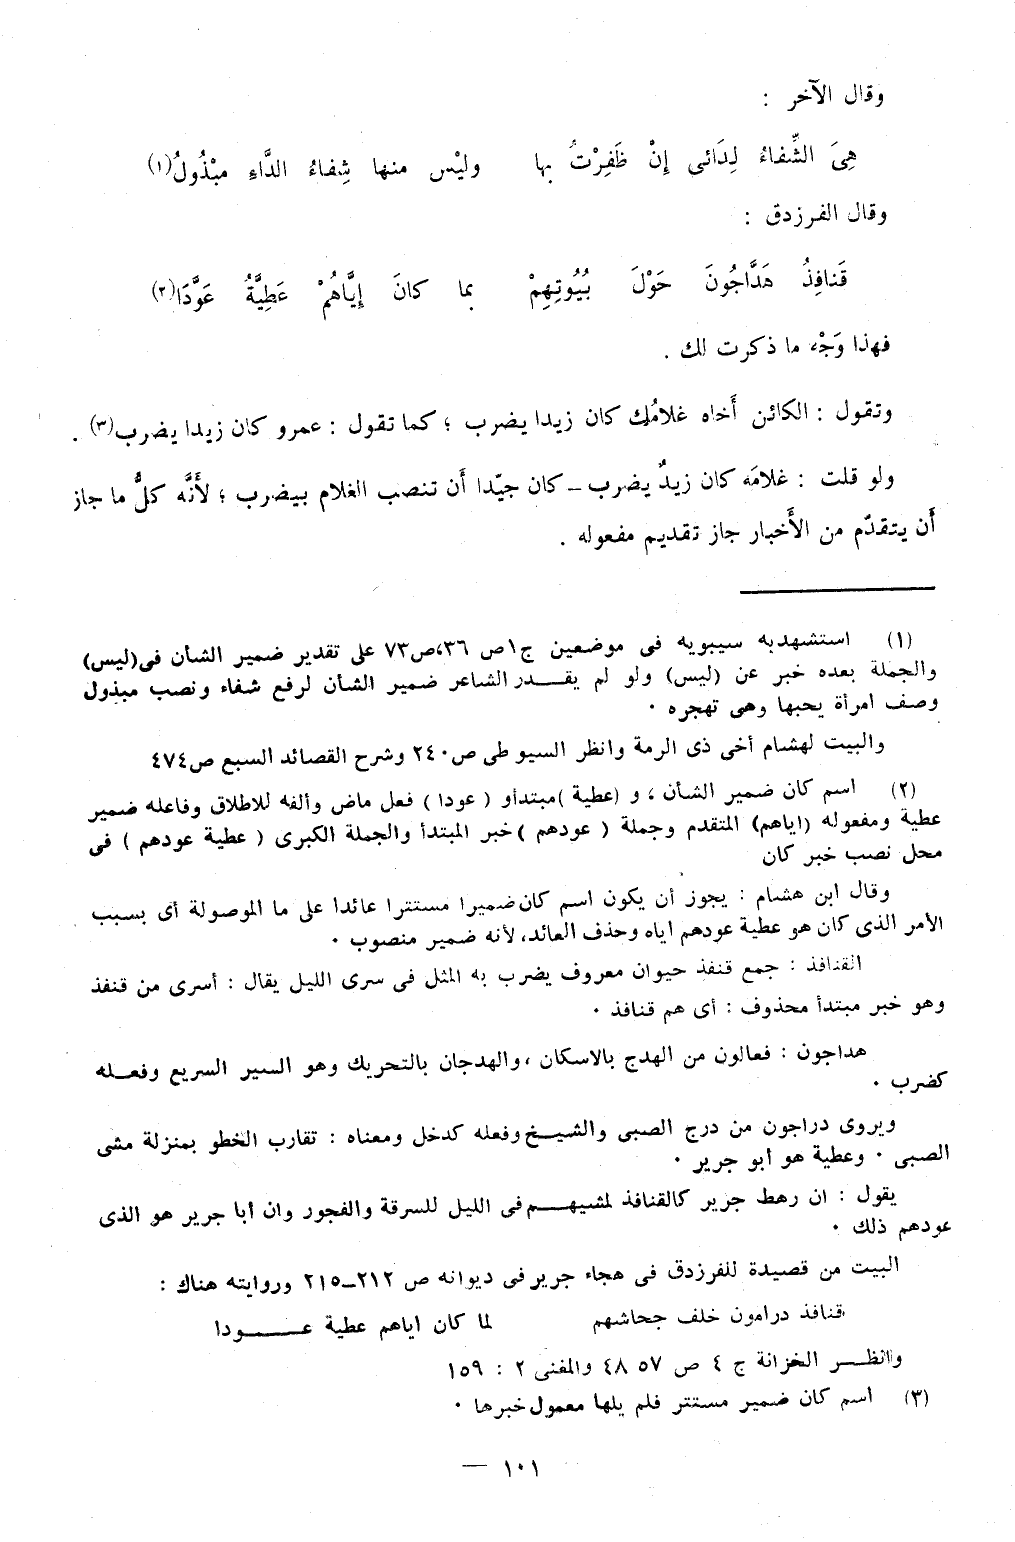 وقال الآخر :
هِىَ الشِّفاءُ لِدَائى إِنْ ظَفِرْتُ بها وليْس منها شِفاءُ الدَّاءِ مبْذُولُ(١)
وقال الفرزدق :
قَنافِذُ هَدَّاجُونَ حَوْلَ بُيُوتِهِمْ بما كانَ إِيَّاهُمْ عَطِيَّةُ عَوَّدَا(٢)
فهذا وَجْه ما ذكرت لك .
وتقول : الكائن أَخاه غلامُك كان زيدا يضرب ؛ كما تقول : عمرو كان زيدا يضرب(٣) .
ولو قلت : غلامَه كان زيدٌ يضرب – كان جيّدا أَن تنصب الغلام بيضرب ؛ لأَنَّه كلُّ ما جاز
أَن يتقدّم من الأَخبار جاز تقديم مفعوله .
(١) استشهدبه سيبويه فى موضعين ج١ص ٣٦،ص٧٣ على تقدير ضمير الشأن فى(ليس)
والجملة بعده خبر عن (ليس) ولو لم يقــدر الشاعر ضمير الشأن لرفع شفاء ونصب مبذول
وصف امرأة يحبها وهى تهجره ٠
والبيت لهشام أخى ذى الرمة وانظر السيو طى ص٢٤٠ وشرح القصائد السبع ص٤٧٤
(٢) اسم كان ضمير الشأن ، و (عطية )مبتدأو ( عودا ) فعل ماض وألفه للاطلاق وفاعله ضمير
عطية ومفعوله (اياهم) المتقدم وجملة ( عودهم )خبر المبتدأ والجملة الكبرى ( عطية عودهم ) فى
محل نصب خبر كان
وقال ابن هشام : يجوز أن يكون اسم كان ضميرا مستترا عائدا على ما الموصولة أى بسبب
الأمر الذى كان هو عطية عودهم اياه وحذف العائد، لأنه ضمير منصوب ٠
القنافذ : جمع قنفذ حيوان معروف يضرب به المثل فى سرى الليل يقال : أسرى من قنفذ
وهو خبر مبتدأ محذوف : أى هم قنافذ ٠
هداجون : فعالون من الهدج بالاسكان ، والهدجان بالتحريك وهو السير السريع وفعــله
كضرب ٠
ويروى دراجون من درج الصبى والشيــخ وفعله كدخل ومعناه : تقارب الخطو بمنزلة مشى
الصبى ٠ وعطية هو أبو جرير ٠
يقول : ان رهط جرير كالقنافذ لمشيهــم فى الليل للسرقة والفجور وان أبا جرير هو الذى
عودهم ذلك ٠
البيت من قصيدة للفرزدق فى هجاء جرير فى ديوانه ص ٢١٢–٢١٥ وروايته هناك :
قنافذ درامون خلف جحاشهم لما كان اياهم عطية عــــودا
وانظــر الخزانة ج ٤ ص ٥٧ ٤٨ والمغنى ٢ : ١٥٩
(٣) اسم كان ضمير مستتر فلم يلها معمول خبرها ٠
١٠١ —